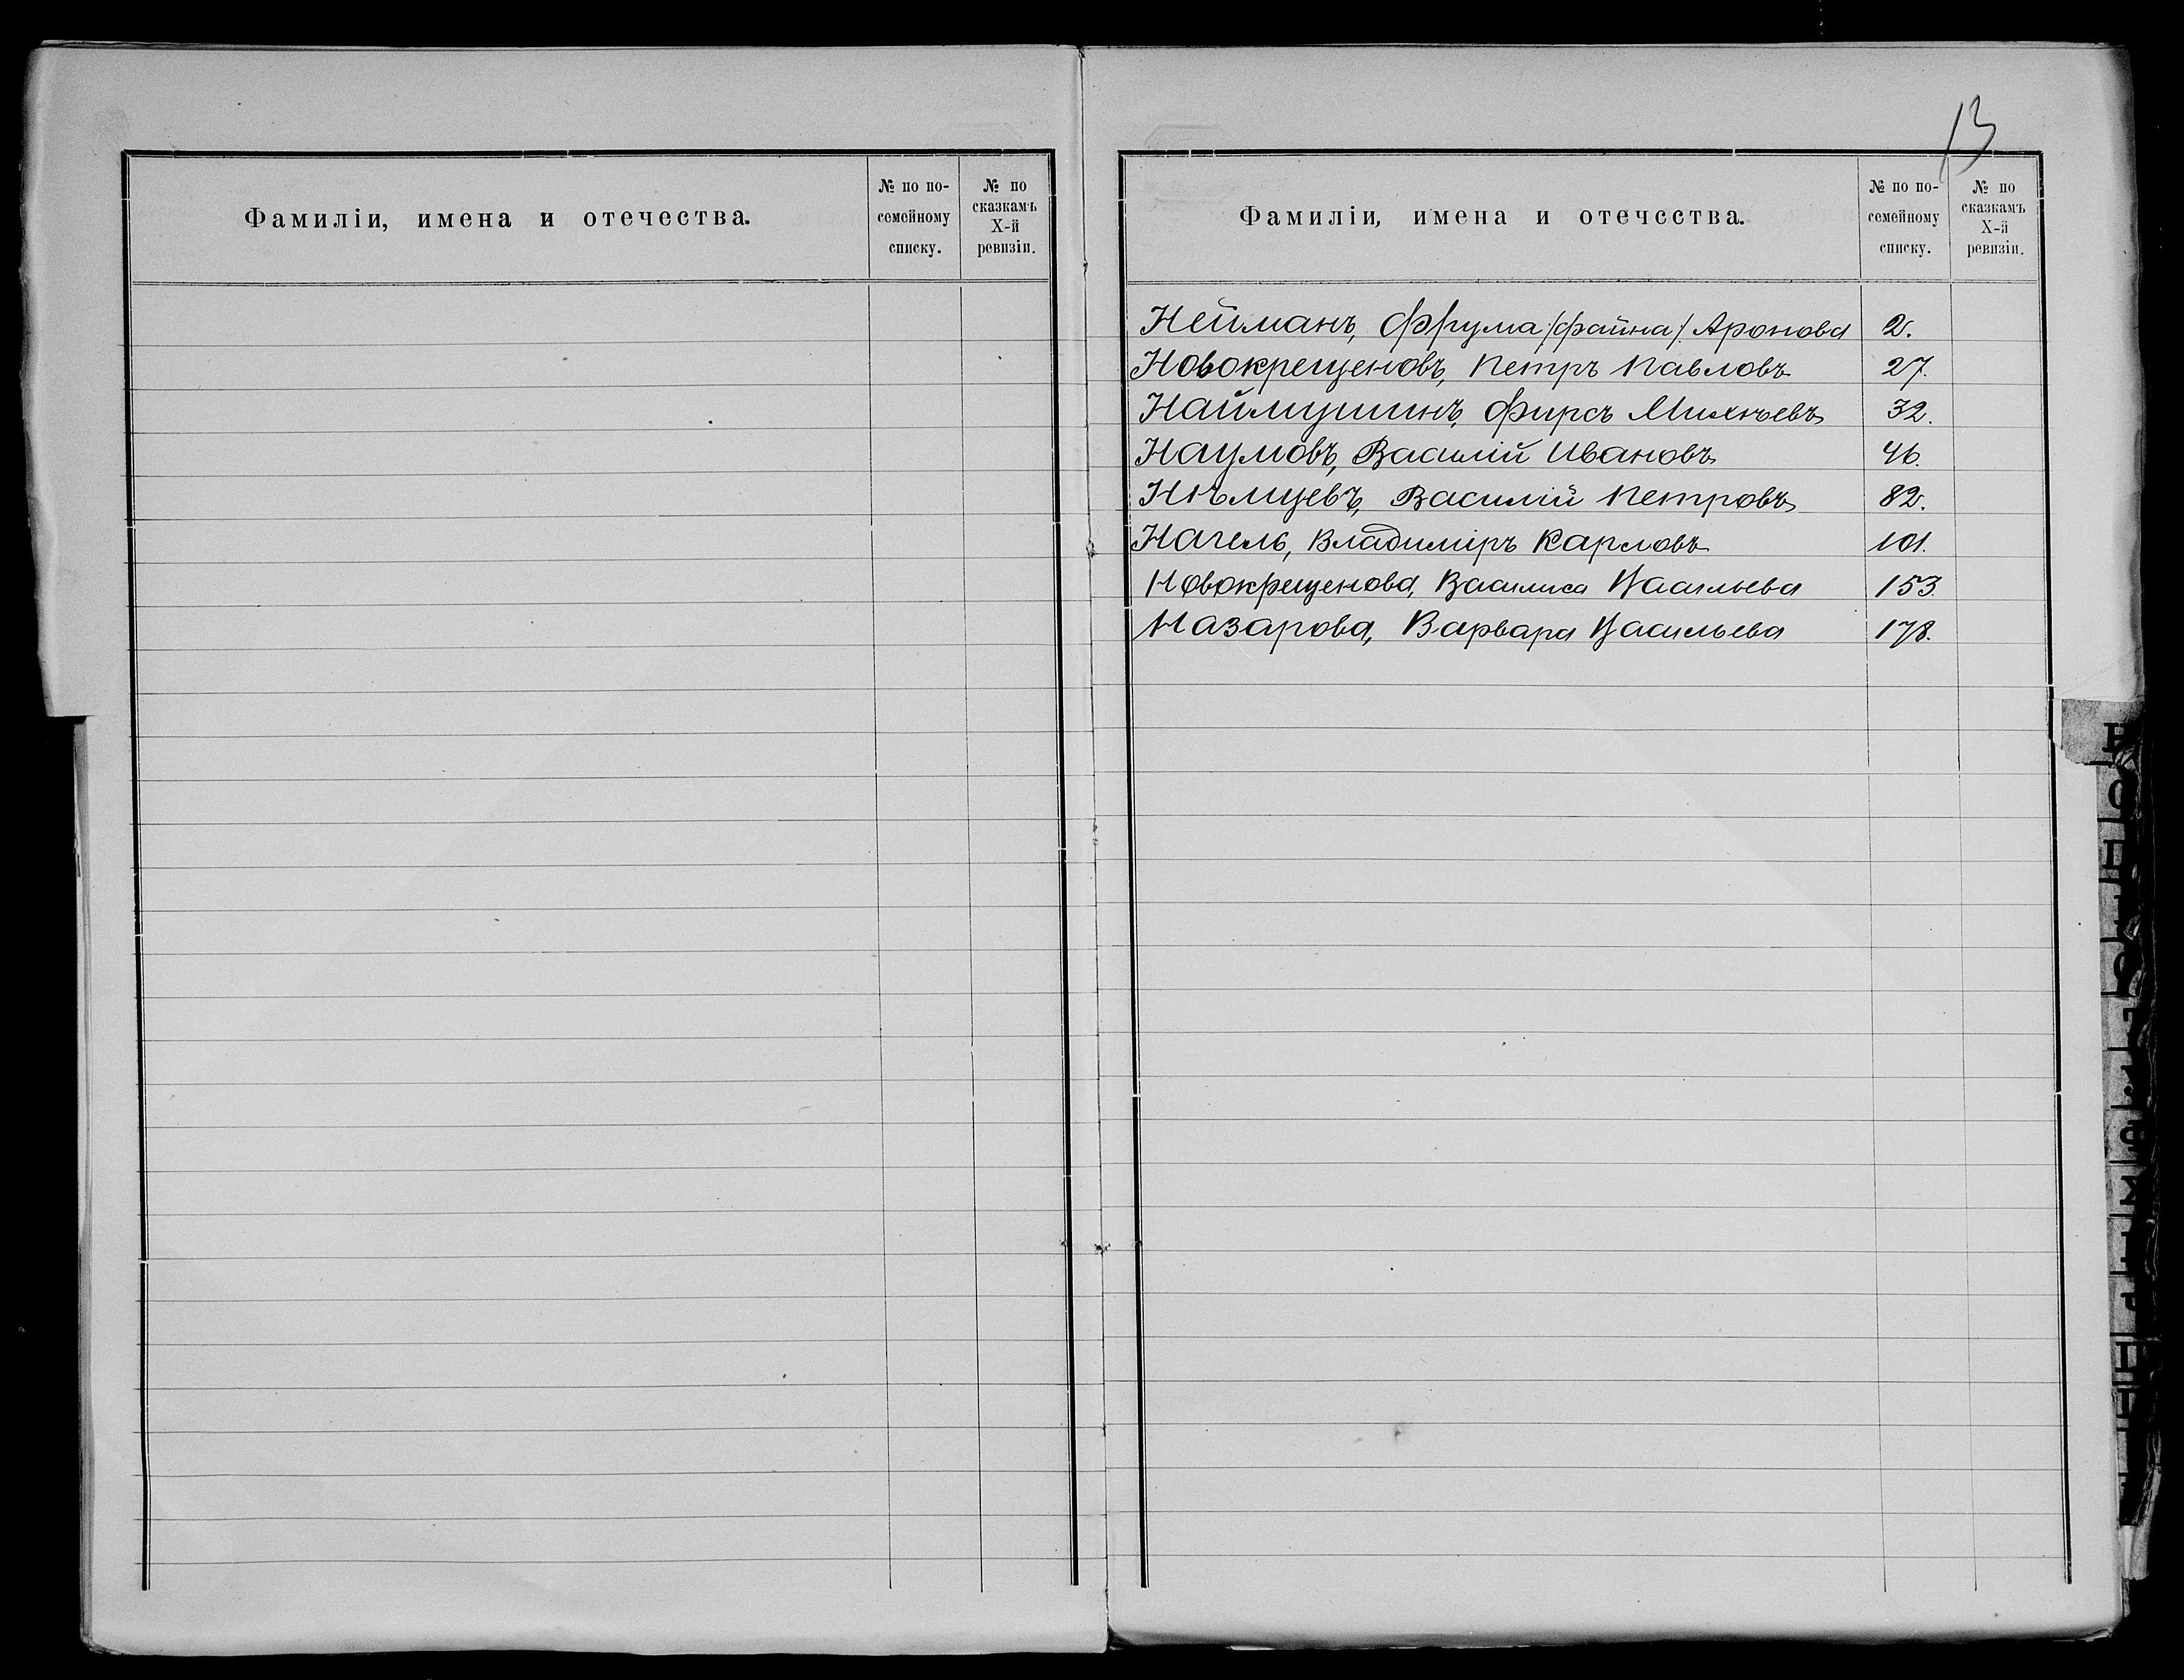 Фамиліи, имена и отечества.
№ по по-
семейному
списку.
№ по
сказкамъ
X-й
ревизіи.
13
Фамиліи, имена и отечества.
№ по по-
семейному
списку.
№ по
сказкамъ
X-й
ревизіи.
Нейманъ, Фрума /Файна/ Аронова 2.
Новокрещеновъ, Петръ Павловъ 27.
Наймушинъ, Фирсъ Михѣевъ 32.
Наумовъ, Василій Ивановъ 46.
Нѣмцевъ, Василій Петровъ 82.
Нагель, Владиміръ Карловъ 101.
Новокрещенова, Василиса Васильева 153.
Назарова, Варвара Васильева 178.